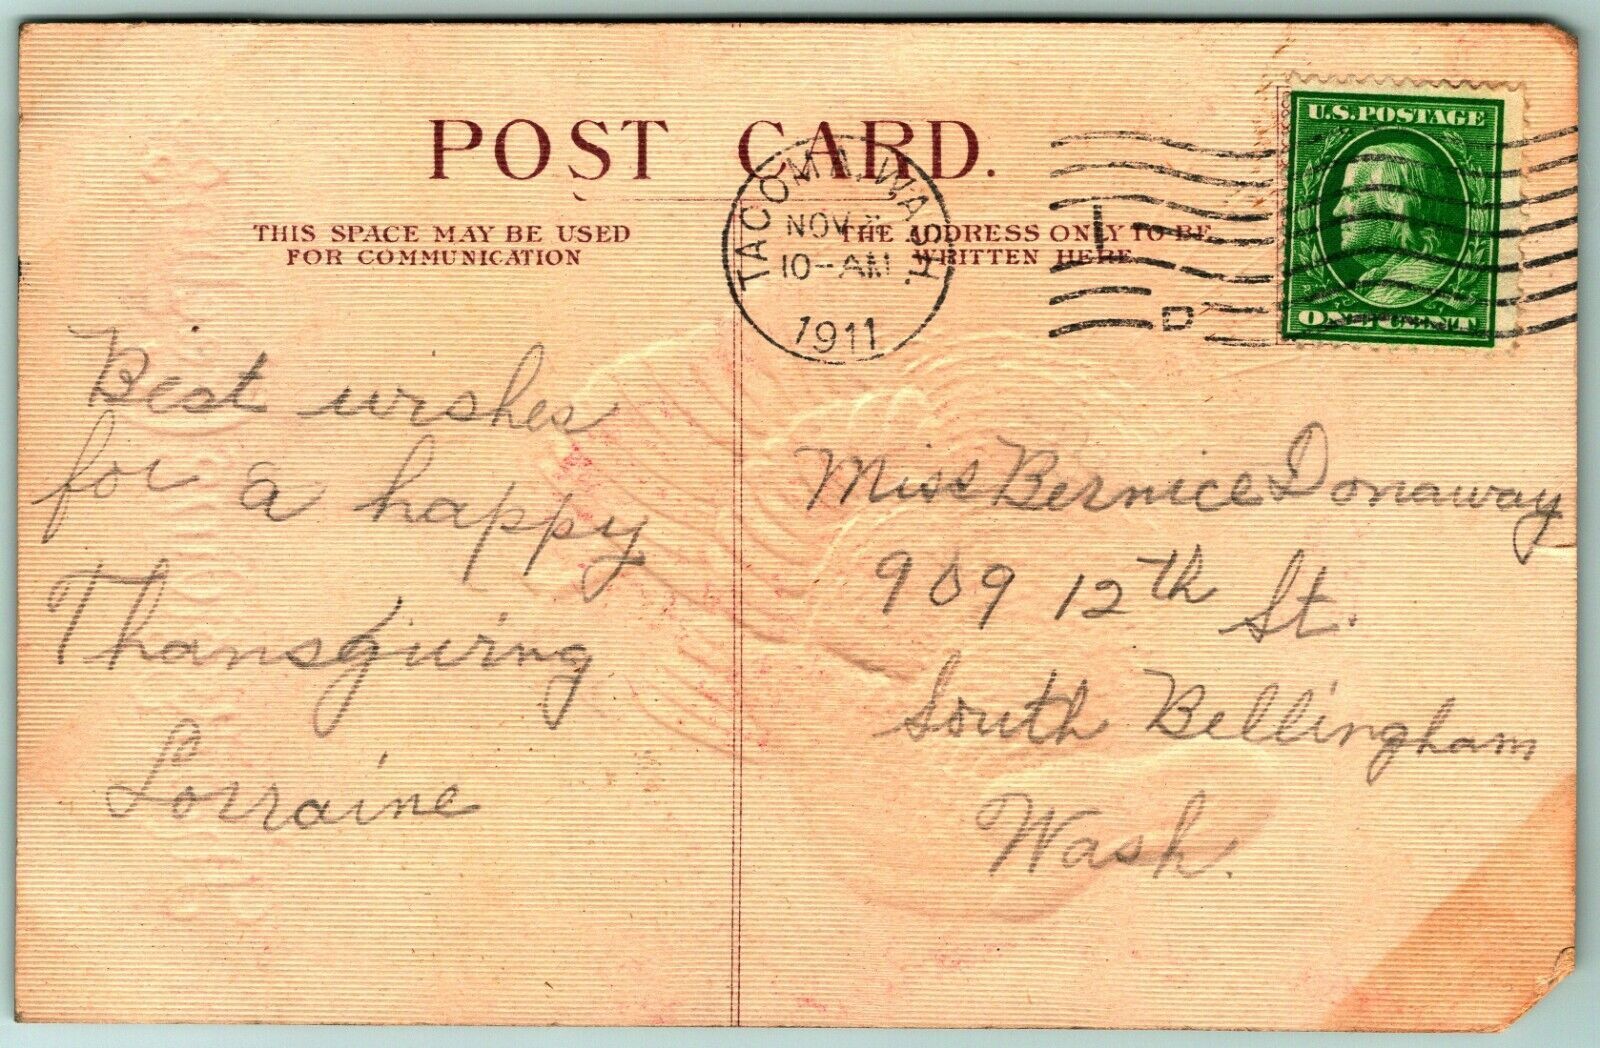 POST CARD.
THIS SPACE MAY BE USED
FOR COMMUNICATION
THE ADDRESS ONLY TO BE
WRITTEN HERE
TACOMA, WASH.
NOV
10-AM
1911
D
U.S. POSTAGE
ONE CENT
Best wishes
for a happy
Thansgiving
Lorraine
Miss Bernice Donaway
909 12th St.
South Bellingham
Wash.